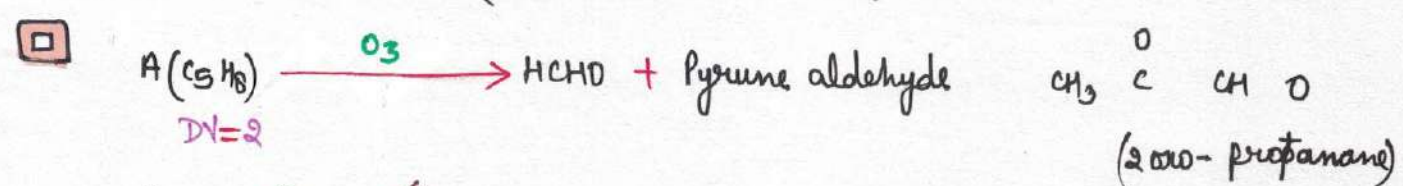 O3
A(C5H8) → HCHO + Pyrune aldehyde CH3 C CH O
O
DV=2
(2 oxo- propanane)